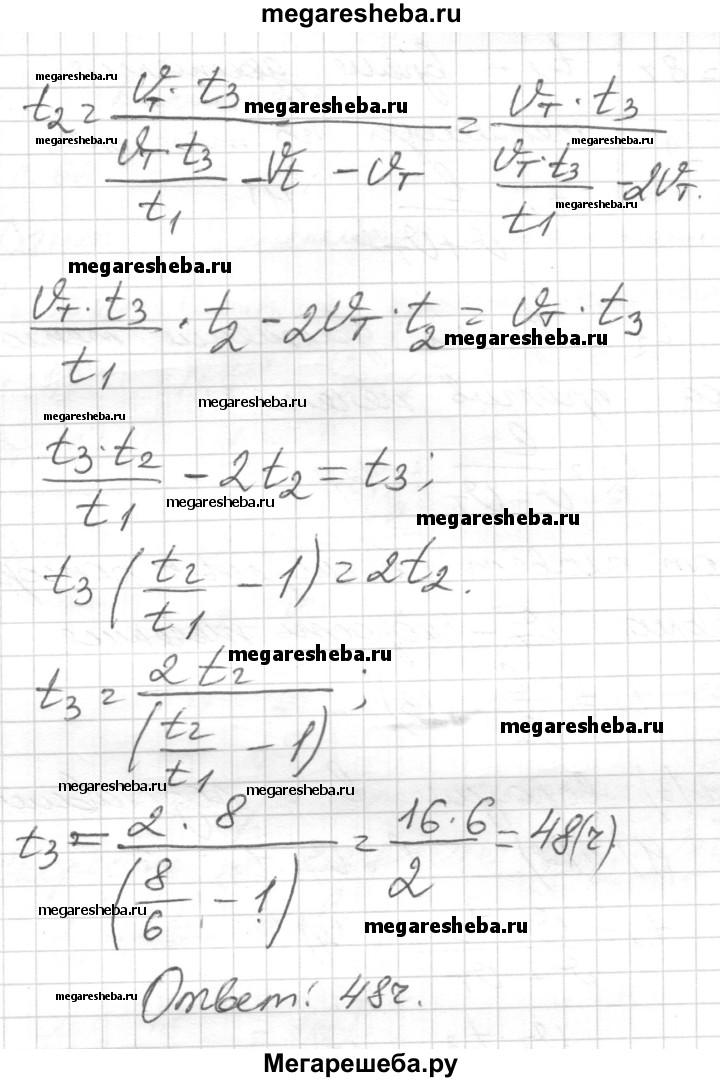 megaresheba.ru
megaresheba.ru
t₂ = (v_т · t₃) / ((v_т · t₃)/t₁ - v_t - v_т) = (v_т · t₃) / ((v_т · t₃)/t₁ - 2v_т.
megaresheba.ru
megaresheba.ru
megaresheba.ru
megaresheba.ru
megaresheba.ru
(v_т · t₃)/t₁ · t₂ - 2v_т · t₂ = v_т · t₃
megaresheba.ru
megaresheba.ru
megaresheba.ru
(t₃ · t₂)/t₁ - 2t₂ = t₃;
megaresheba.ru
megaresheba.ru
t₃ (t₂/t₁ - 1) = 2t₂.
megaresheba.ru
t₃ = 2t₂ / (t₂/t₁ - 1);
megaresheba.ru
megaresheba.ru
megaresheba.ru
t₃ = (2 · 8) / (8/6 - 1) = (16 · 6)/2 = 48(ч).
megaresheba.ru
megaresheba.ru
Ответ: 48ч.
megaresheba.ru
megaresheba.ru
Мегарешеба.ру